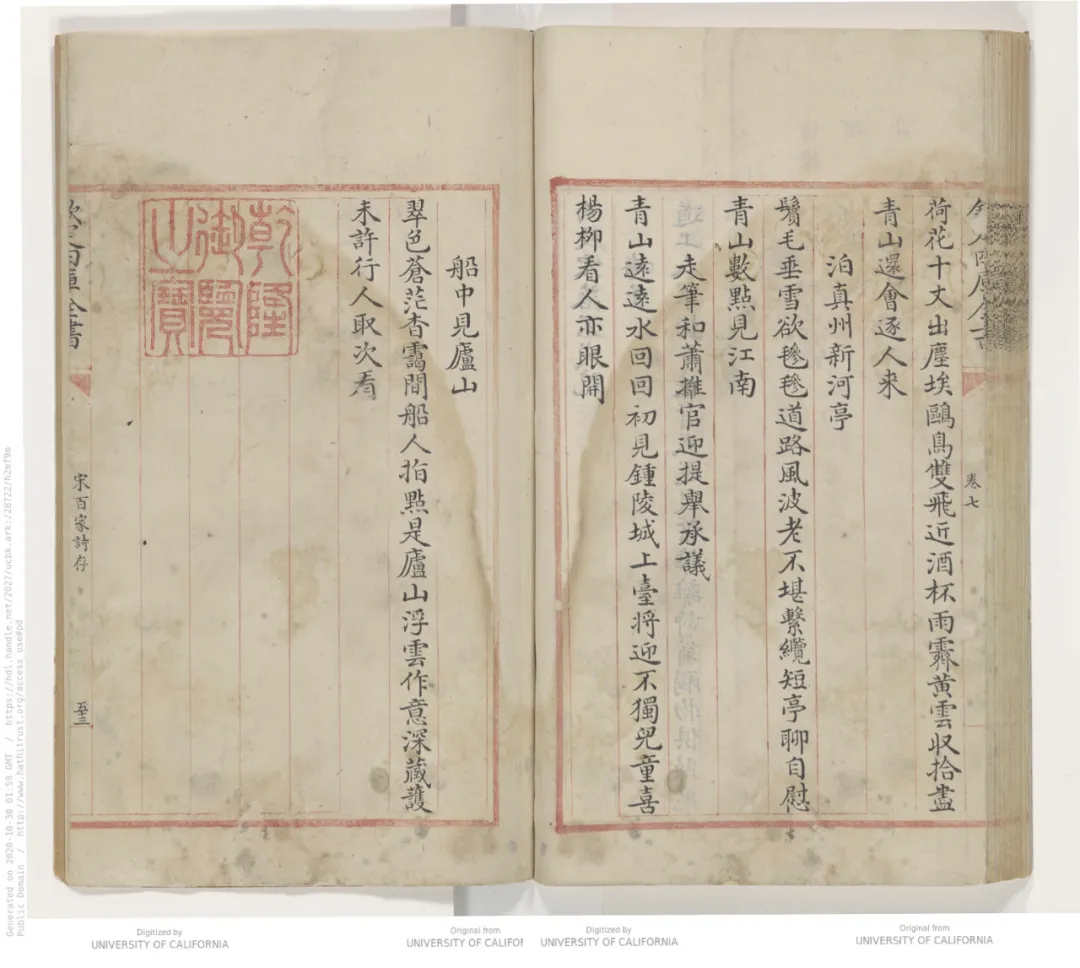 欽定四庫全書
卷七
荷花十丈出塵埃鷗鳥雙飛近酒杯雨霽黃雲収拾盡
青山還會逐人来
泊真州新河亭
鬢毛垂雪欲毿毿道路風波老不堪繫纜短亭聊自慰
青山數點見江南
走筆和蕭推官迎提舉承議
青山遠遠水回回初見鍾陵城上臺将迎不獨兒童喜
楊柳看人亦眼開
船中見廬山
翠色蒼茫杳靄間船人指點是廬山浮雲作意深藏護
未許行人取次看
乾隆御覽之寶
欽定四庫全書
宋百家詩存
至三
Digitized by
UNIVERSITY OF CALIFORNIA
Original from
UNIVERSITY OF CALIFOR
Digitized by
UNIVERSITY OF CALIFORNIA
Original from
UNIVERSITY OF CALIFORNIA
Generated on 2020-10-30 01:59 GMT / https://hdl.handle.net/2027/ucbk.ark:/28722/h2mf9m
Public Domain / http://www.hathitrust.org/access_use#pd